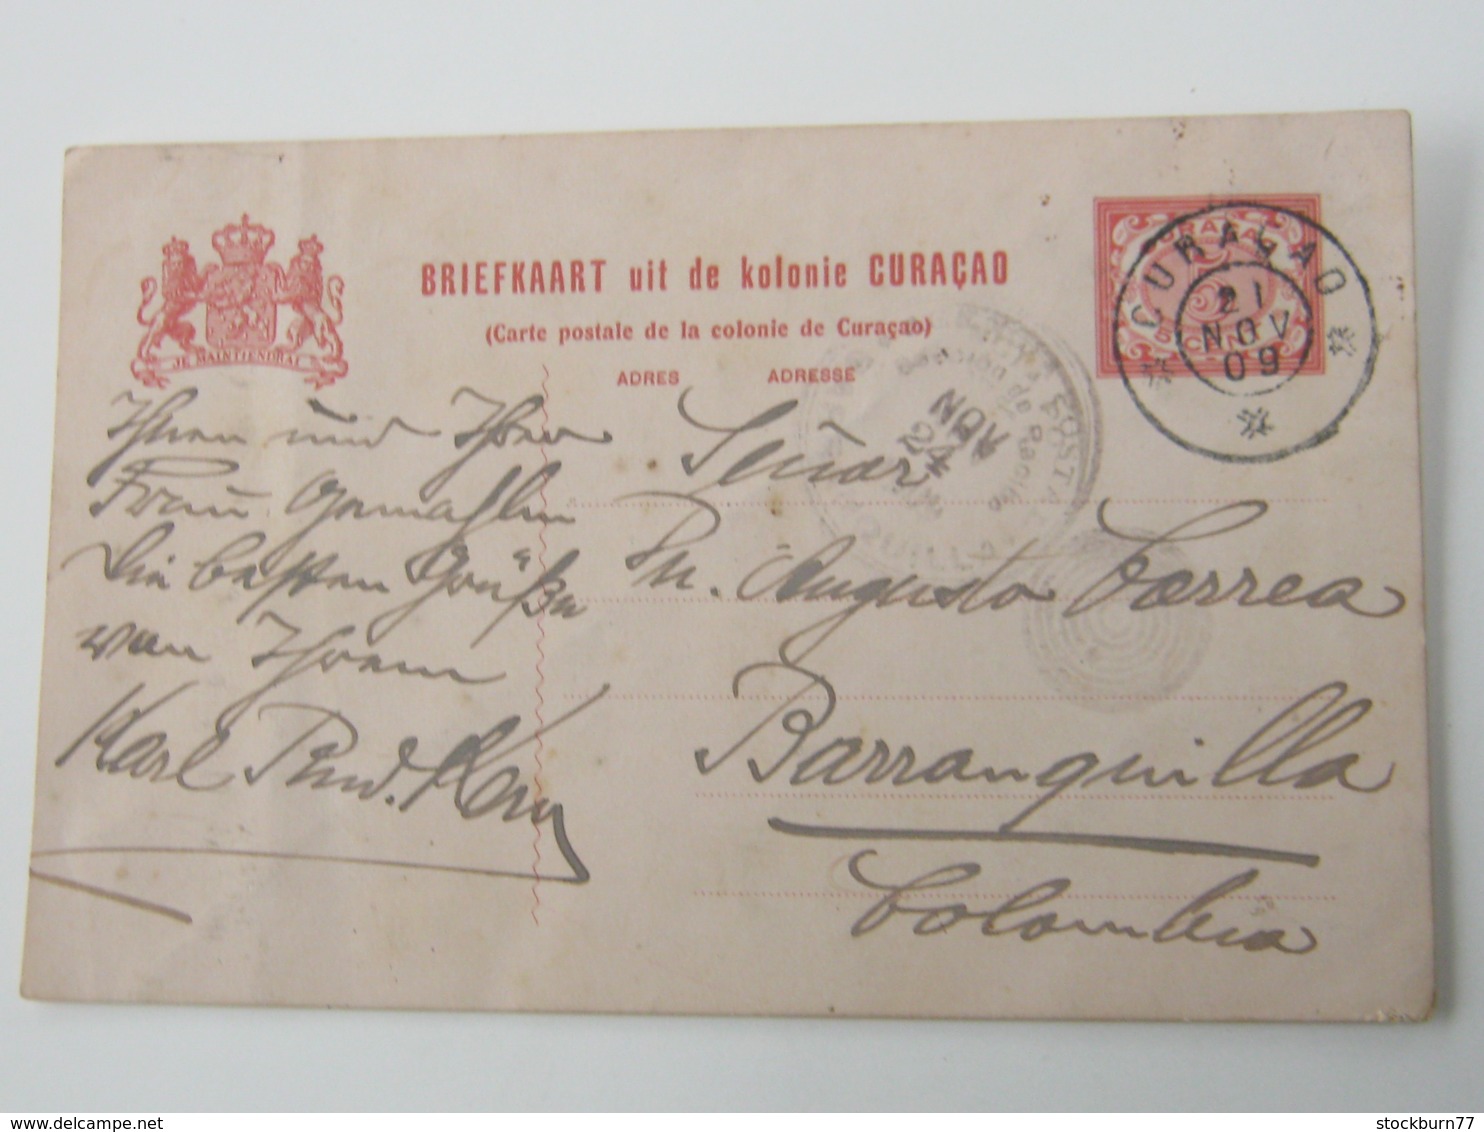 BRIEFKAART uit de kolonie CURAÇAO
(Carte postale de la colonie de Curaçao)
ADRES ADRESSE
JE MAINTIENDRAI
CURAÇAO
5 CENT
CURAÇAO
21
NOV
09
NOV
24
Ihnen und Ihrer
Frau Gemahlin
die besten Grüße
von Ihrem
Karl Rud.
Señor
Augusto Correa
Barranquilla
Colombia
delcampe.net
stockburn77